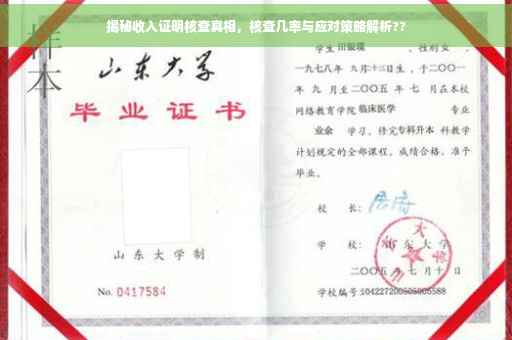 揭秘收入证明核查真相，核查几率与应对策略解析??
样本
山东大学
毕业证书
山东大学制
No. 0417584
学生 田 性别 女，
一九七八年 九月十三日生，于二〇〇一
年 九 月至二〇〇五 年 七 月在本校
网络教育学院 临床医学 专业
业余 学习，修完专科升本 科教学
计划规定的全部课程，成绩合格，准予
毕业。
校 长：
学 校： 山东大学
二〇〇五 年 七 月 十 日
学校编号：104227200505005588